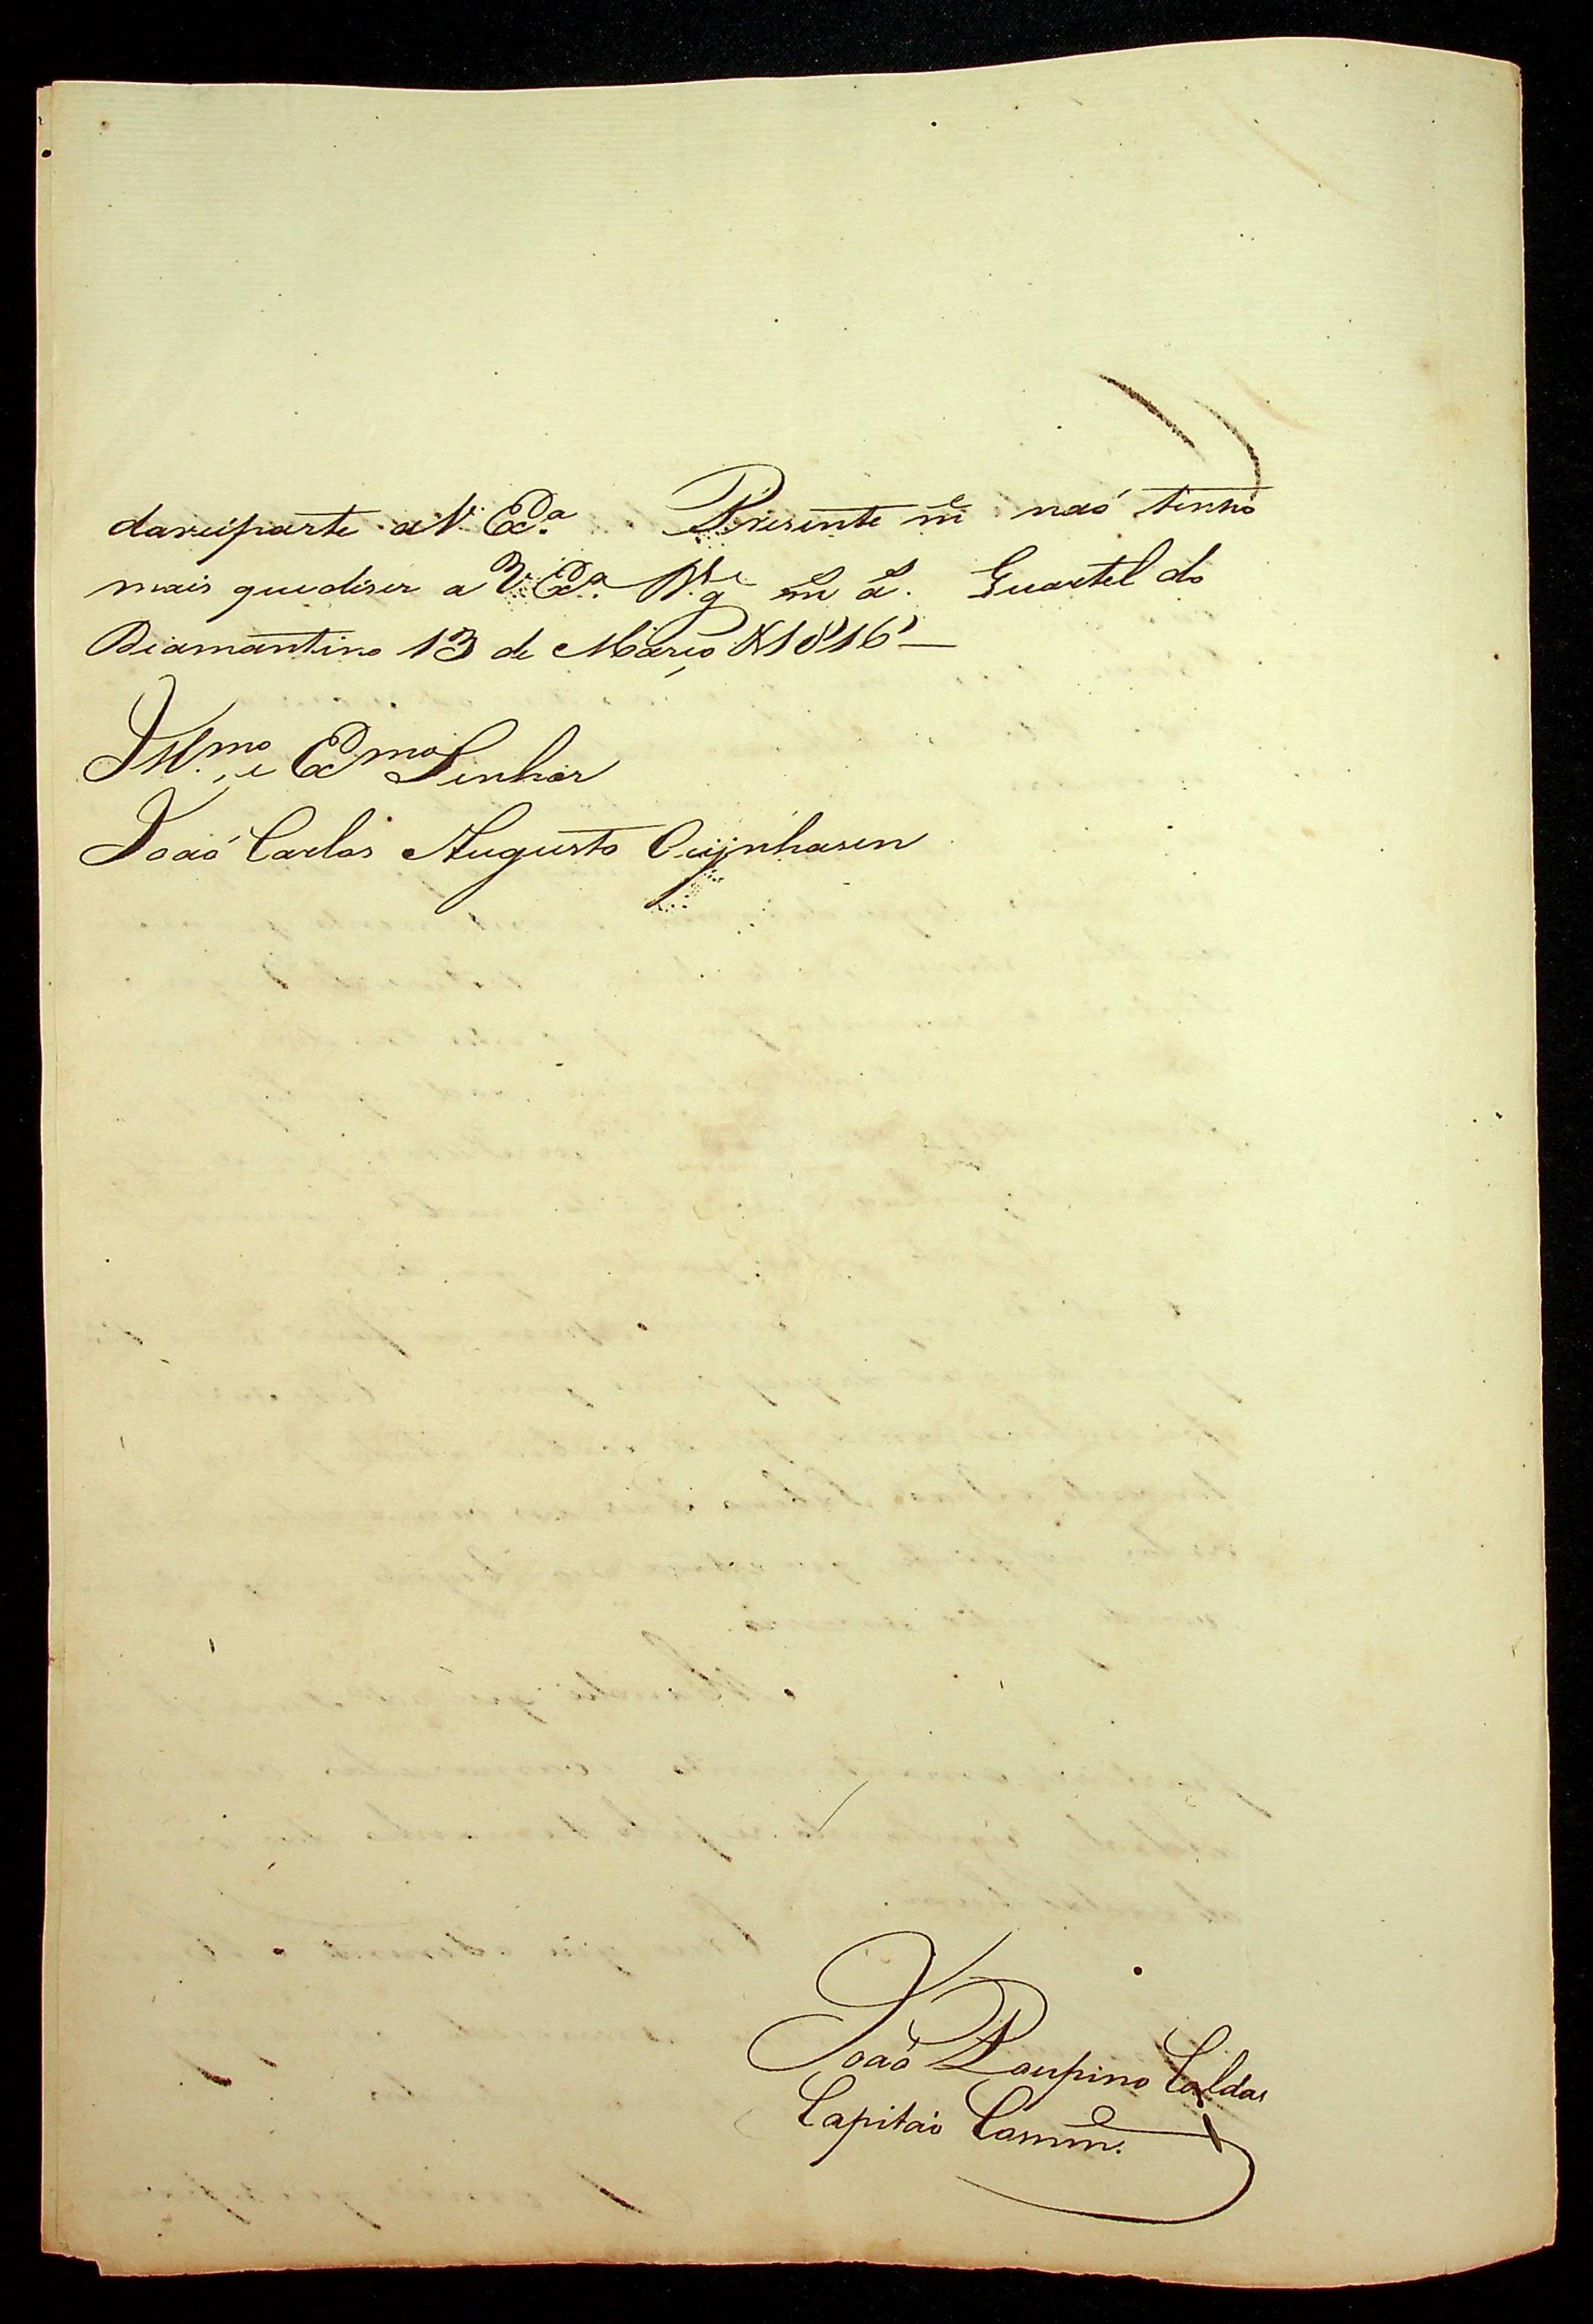 dareiparte a V. Exa. Presente m.e naó tenho
mais quediser a V. Exa. D.s g.e m. a. Quartel do
Diamantino 13 de Março de 1816
Illmo. e Exmo. Senhor
Joaó Carlos Augusto Oijnhasen
Joaó Poupino Caldas
Capitaó Comm.e